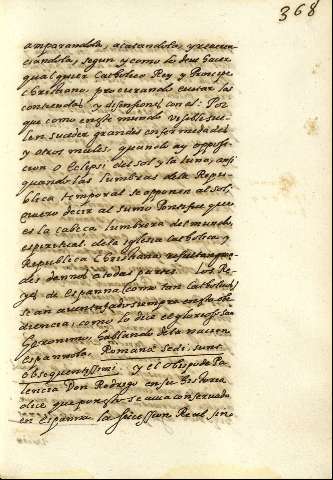 368
amparandola, acatandola, y reveren
ciandola, segun y como lo deve hacer
qualquier Catholico Rey y Principe
Christiano, procurando evitar las
contiendas y disensiones con el: Por
que como en este mundo visible sue
len suceder grandes enfermedades
y otros males, quando ay opposi
cion o Eclipsi del sol y la luna, ansi
quando las lumbres de la Repu
blica temporal se opponen al sol,
quiero decir al sumo Pontifice que
es la cabeça lumbrera del mundo
espiritual de la iglesia catholica y
Republica Christiana resultan gran
des daños a todas partes. Los Re
yes de Espanna (como tan Catholicos)
se an aventajado siempre en la obe
diencia, como lo dice el glorioso san
Geronimo, hablando de la nacion
espannola, Romanæ sedi sunt
obsequentissimi y el Obispo de Pa
lencia Don Rodrigo en su Historia
dice que por esto se avia conservado
en Espanna la sucession Real, sino